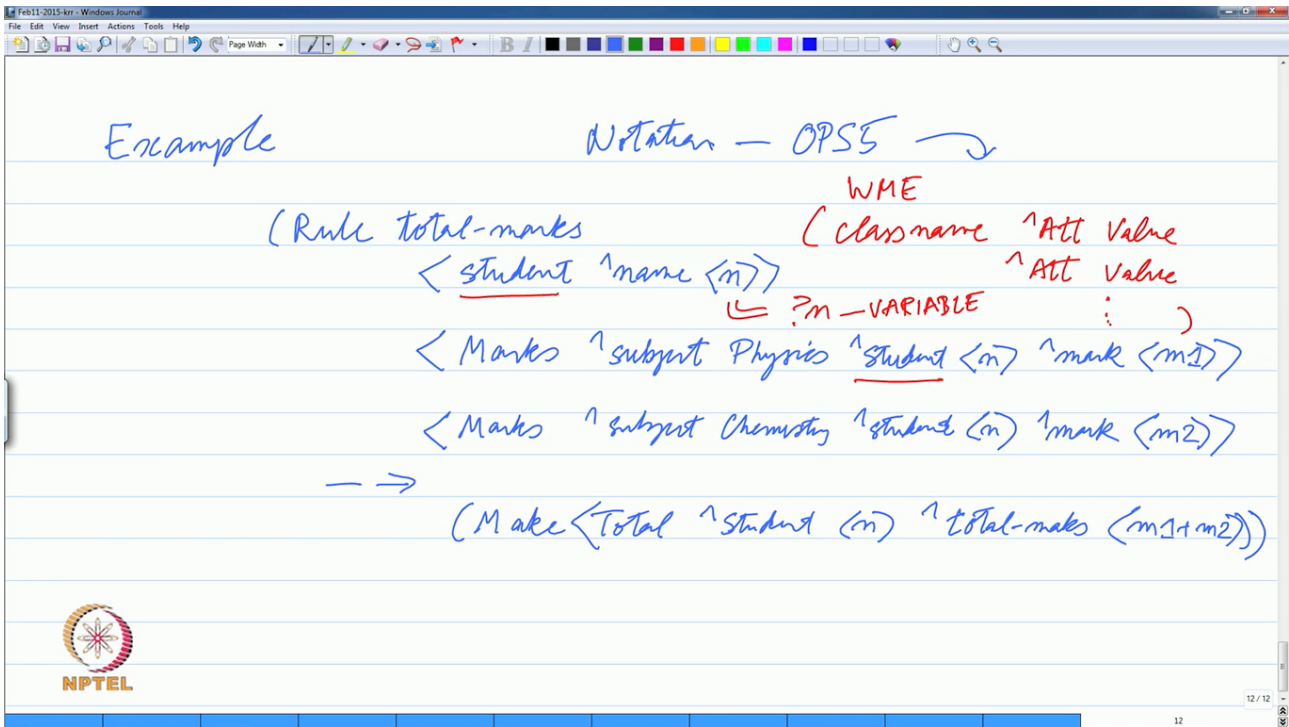 Feb11-2015-krr - Windows Journal
File Edit View Insert Actions Tools Help
Page Width
B I
Example Notation — OPS5
WME
(Rule total-marks (classname ^Att Value
<student ^name <n>> ^Att Value
?n — VARIABLE : )
<Marks ^subject Physics ^student <n> ^mark <m1>>
<Marks ^subject Chemistry ^student <n> ^mark <m2>>
— →
(Make <Total ^Student <n> ^total-maks <m1+m2>>)
NPTEL
12 / 12
12